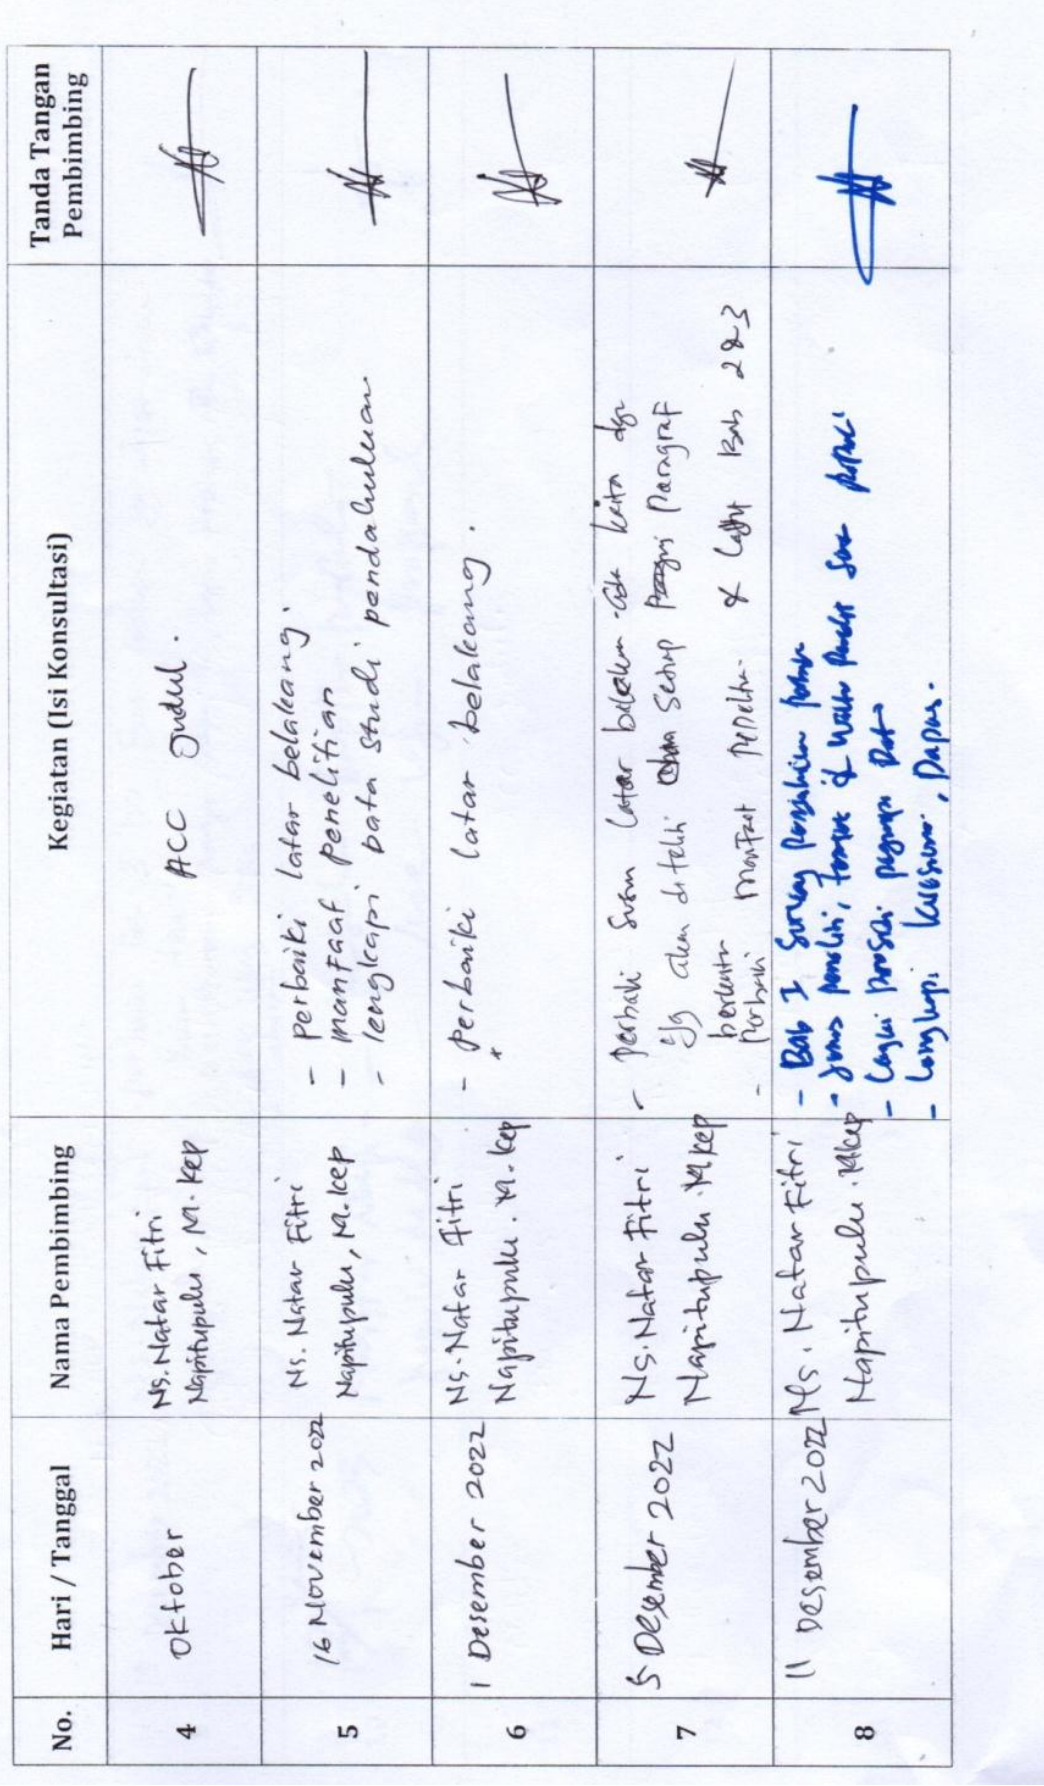 No.
Hari / Tanggal
Nama Pembimbing
Kegiatan (Isi Konsultasi)
Tanda Tangan
Pembimbing
4
Oktober
Ns. Natar Fitri
Napitupulu, M. Kep
ACC Judul.
5
16 November 2022
Ns. Natar Fitri
Napitupulu, M. Kep
- Perbaiki latar belakang
- manfaat penelitian
- lengkapi data studi pendahuluan
6
1 Desember 2022
Ns. Natar Fitri
Napitupulu. M. Kep
- Perbaiki latar belakang.
7
5 Desember 2022
Ns. Natar Fitri
Napitupulu. M.Kep
- perbaiki susun latar belakang
yg akan diteliti setiap Paragraf
- Perbaiki manfaat & lanjut Bab 2 & 3
8
11 Desember 2022
Ns. Natar Fitri
Napitupulu. M.Kep
- Bab I Survey
- , tempat & waktu
- 
- Lengkapi kuesioner, Dapus.